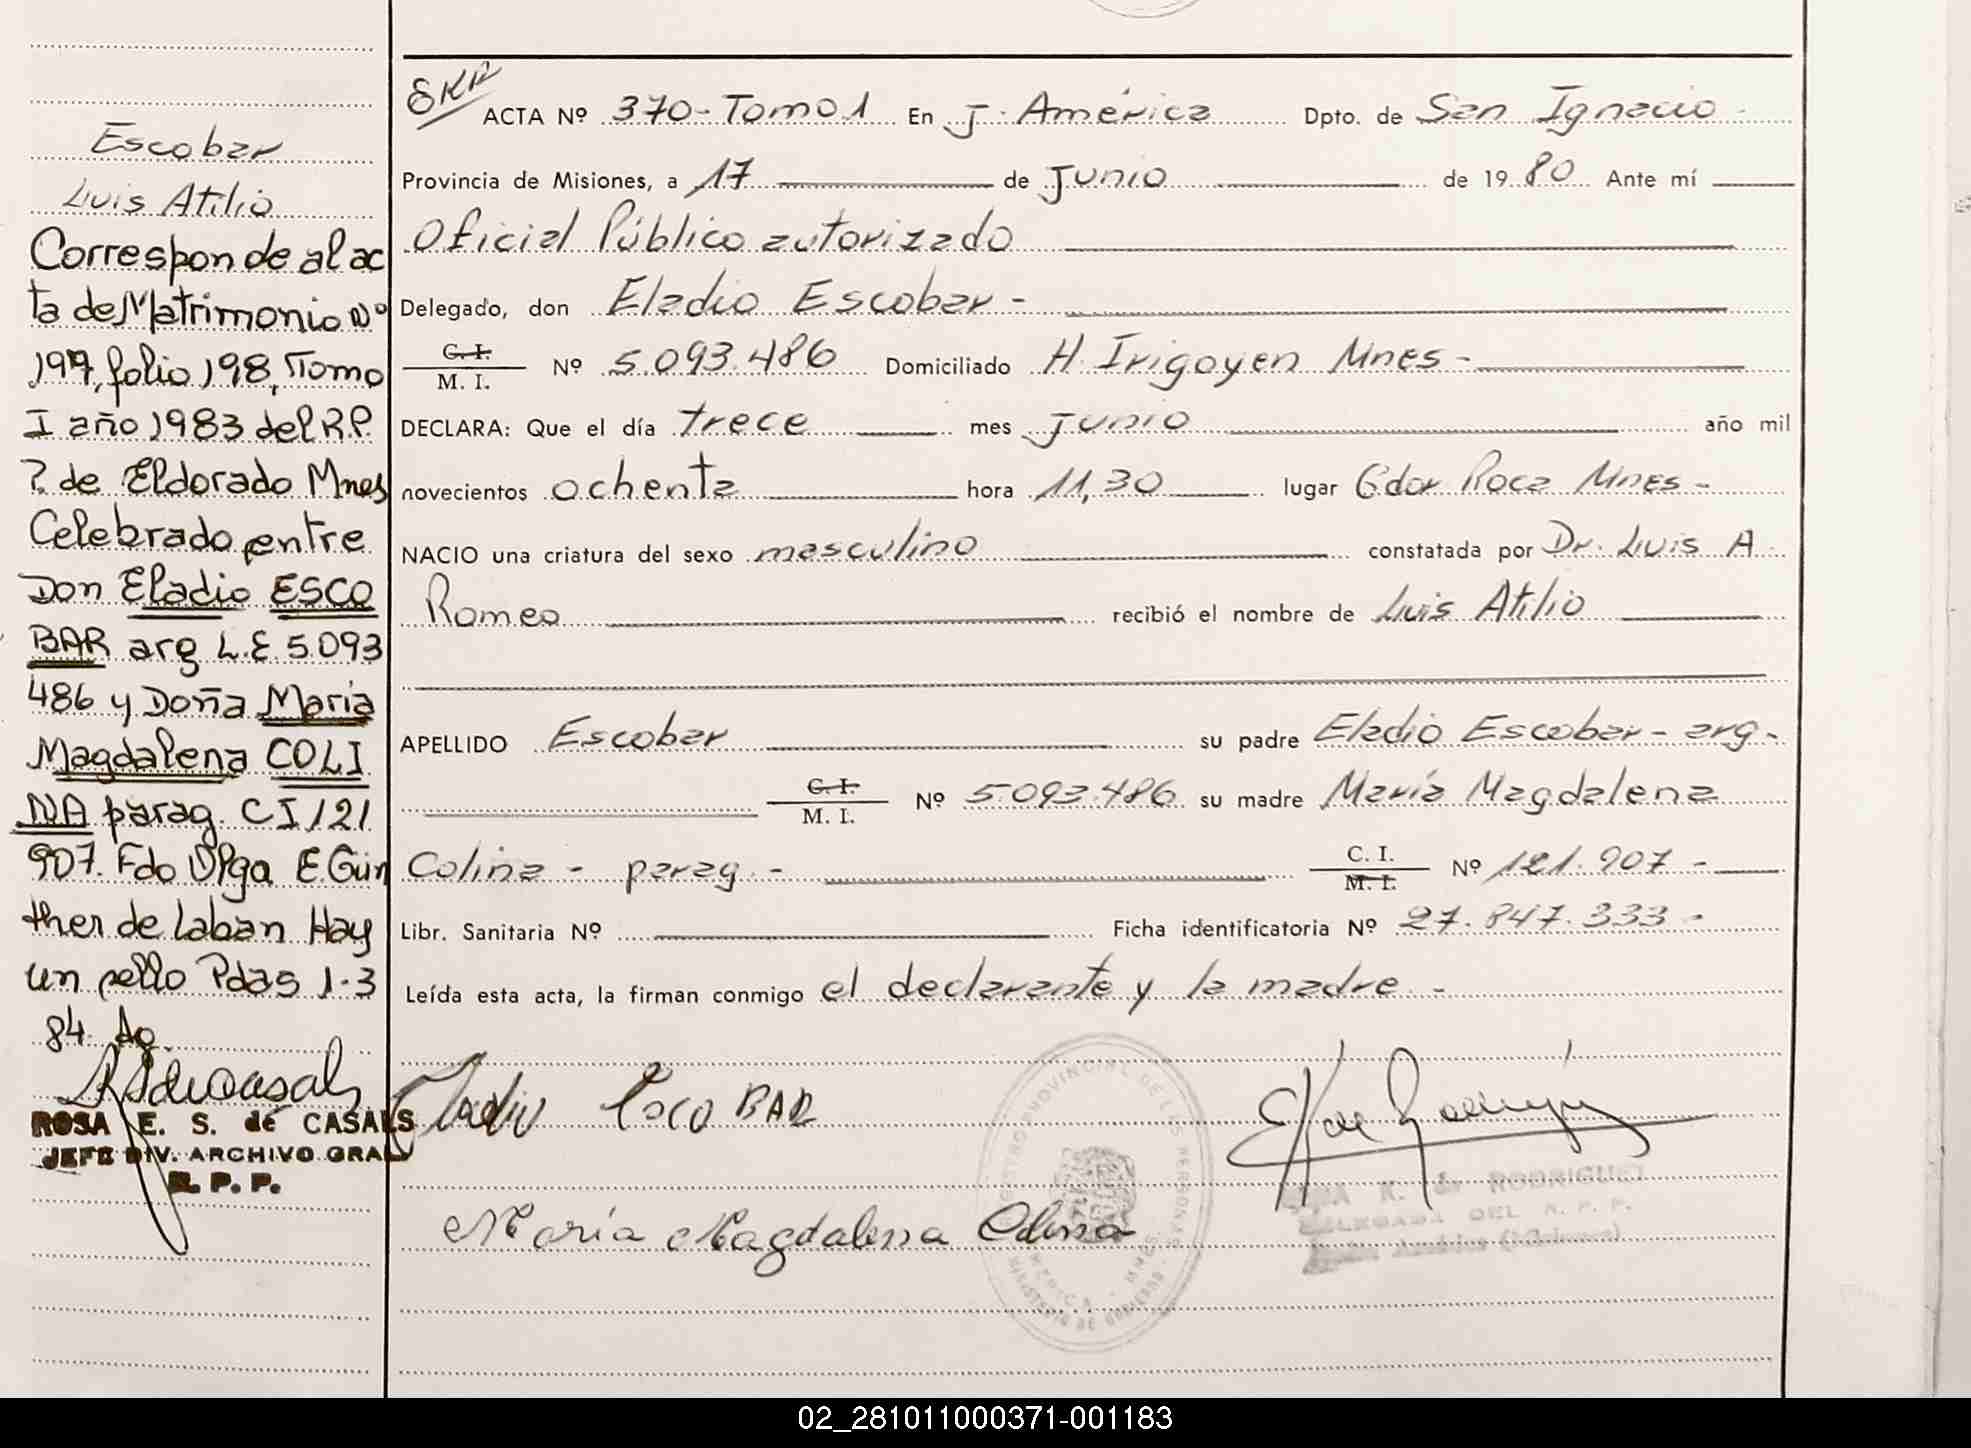 Escobar
Luis Atilio
Corresponde al ac
ta de Matrimonio Nº
197, folio 198, Tomo
I año 1983 del R.P.
? de Eldorado Mnes
Celebrado entre
Don Eladio ESCO
BAR arg L.E 5.093
486 y Doña Maria
Magdalena COLI
NA parag. C I 121
907. Fdo Olga E. Gün
ther de Laban Hay
un sello Pdas 1-3
84.
ROSA E. S. de CASALS
JEFE DIV. ARCHIVO GRAL
R. P. P.
ACTA Nº 370-Tomo 1 En J. América Dpto. de San Ignacio -
Provincia de Misiones, a 17 de Junio de 19 80 Ante mí
Oficial Público autorizado
Delegado, don Eladio Escobar -
C. I.
M. I. Nº 5.093.486 Domiciliado H. Irigoyen Mnes -
DECLARA: Que el día trece mes Junio año mil
novecientos ochenta hora 11,30 lugar Gdor Roca Mnes -
NACIO una criatura del sexo masculino constatada por Dr. Luis A
Romeo recibió el nombre de Luis Atilio
APELLIDO Escobar su padre Eladio Escobar - arg -
C. I.
M. I. Nº 5.093.486 su madre María Magdalena
Colina - parag. - C. I.
M. I. Nº 121.907 -
Libr. Sanitaria Nº Ficha identificatoria Nº 27.847.333 -
Leída esta acta, la firman conmigo el declarante y la madre -
Eladio Escobar
María Magdalena Colina
REGISTRO PROVINCIAL DE LAS PERSONAS
MINISTERIO DE GOBIERNO
AMERICA - MNES.
K. de RODRIGUEZ
DELEGADA DEL R. P. P.
02_281011000371-001183